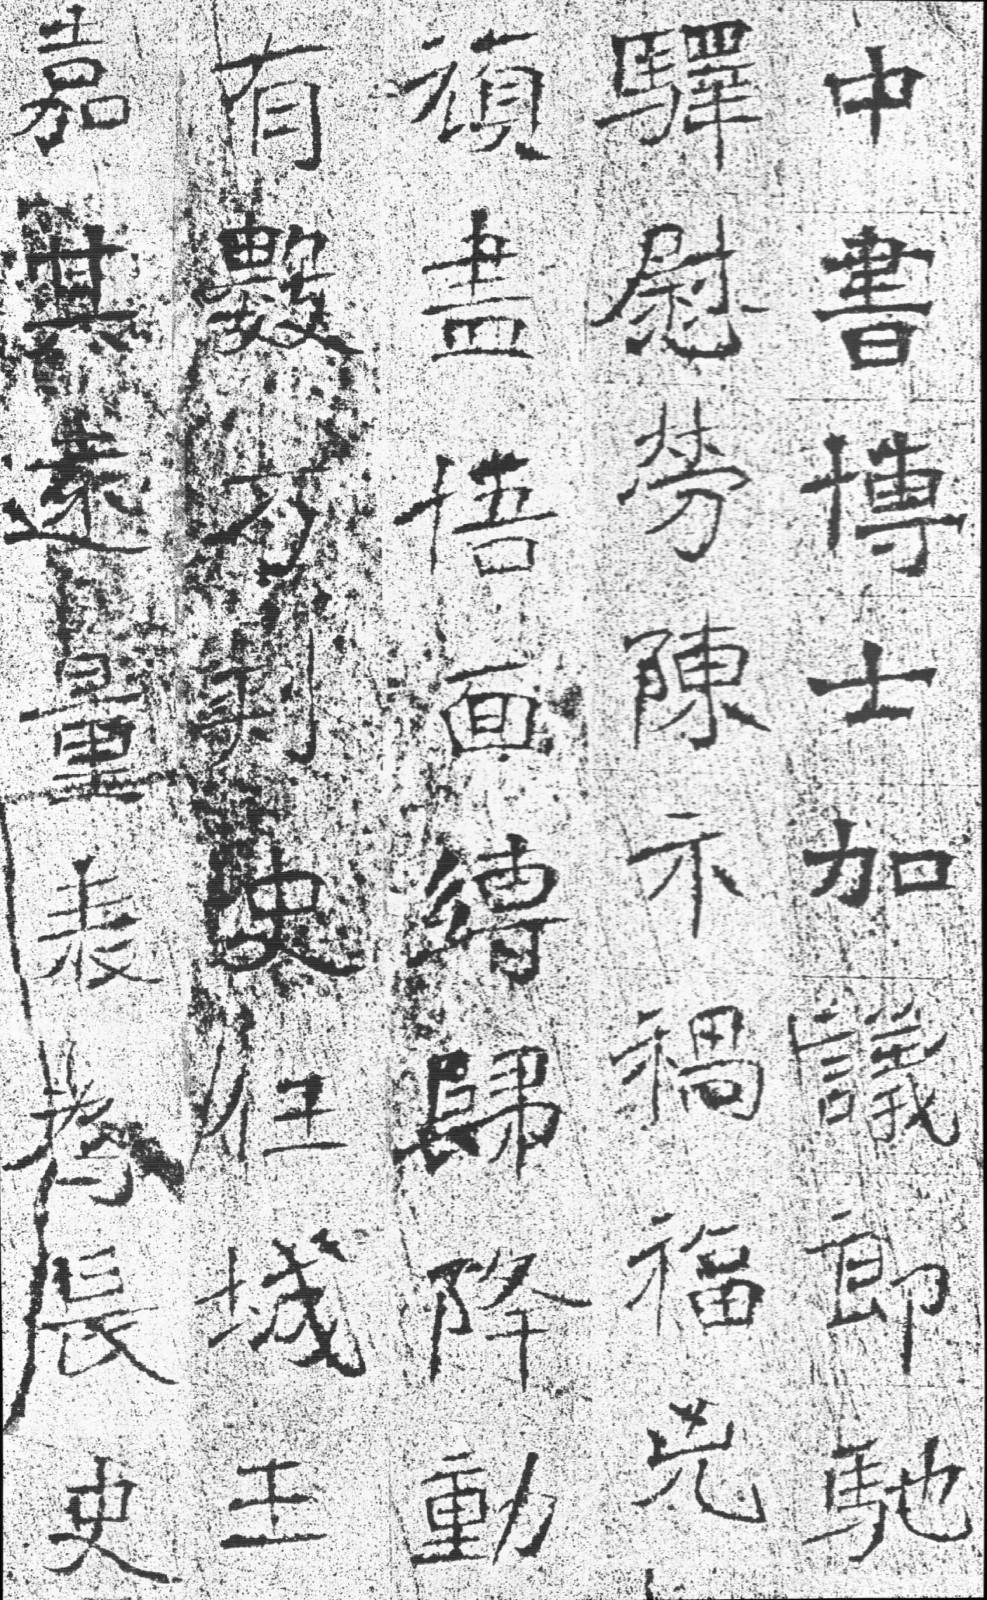 中書博士加議郎馳
驛慰勞陳示禍福兇
頑盡悟面縛歸降動
有數萬刺史任城王
嘉其遠量表為長史